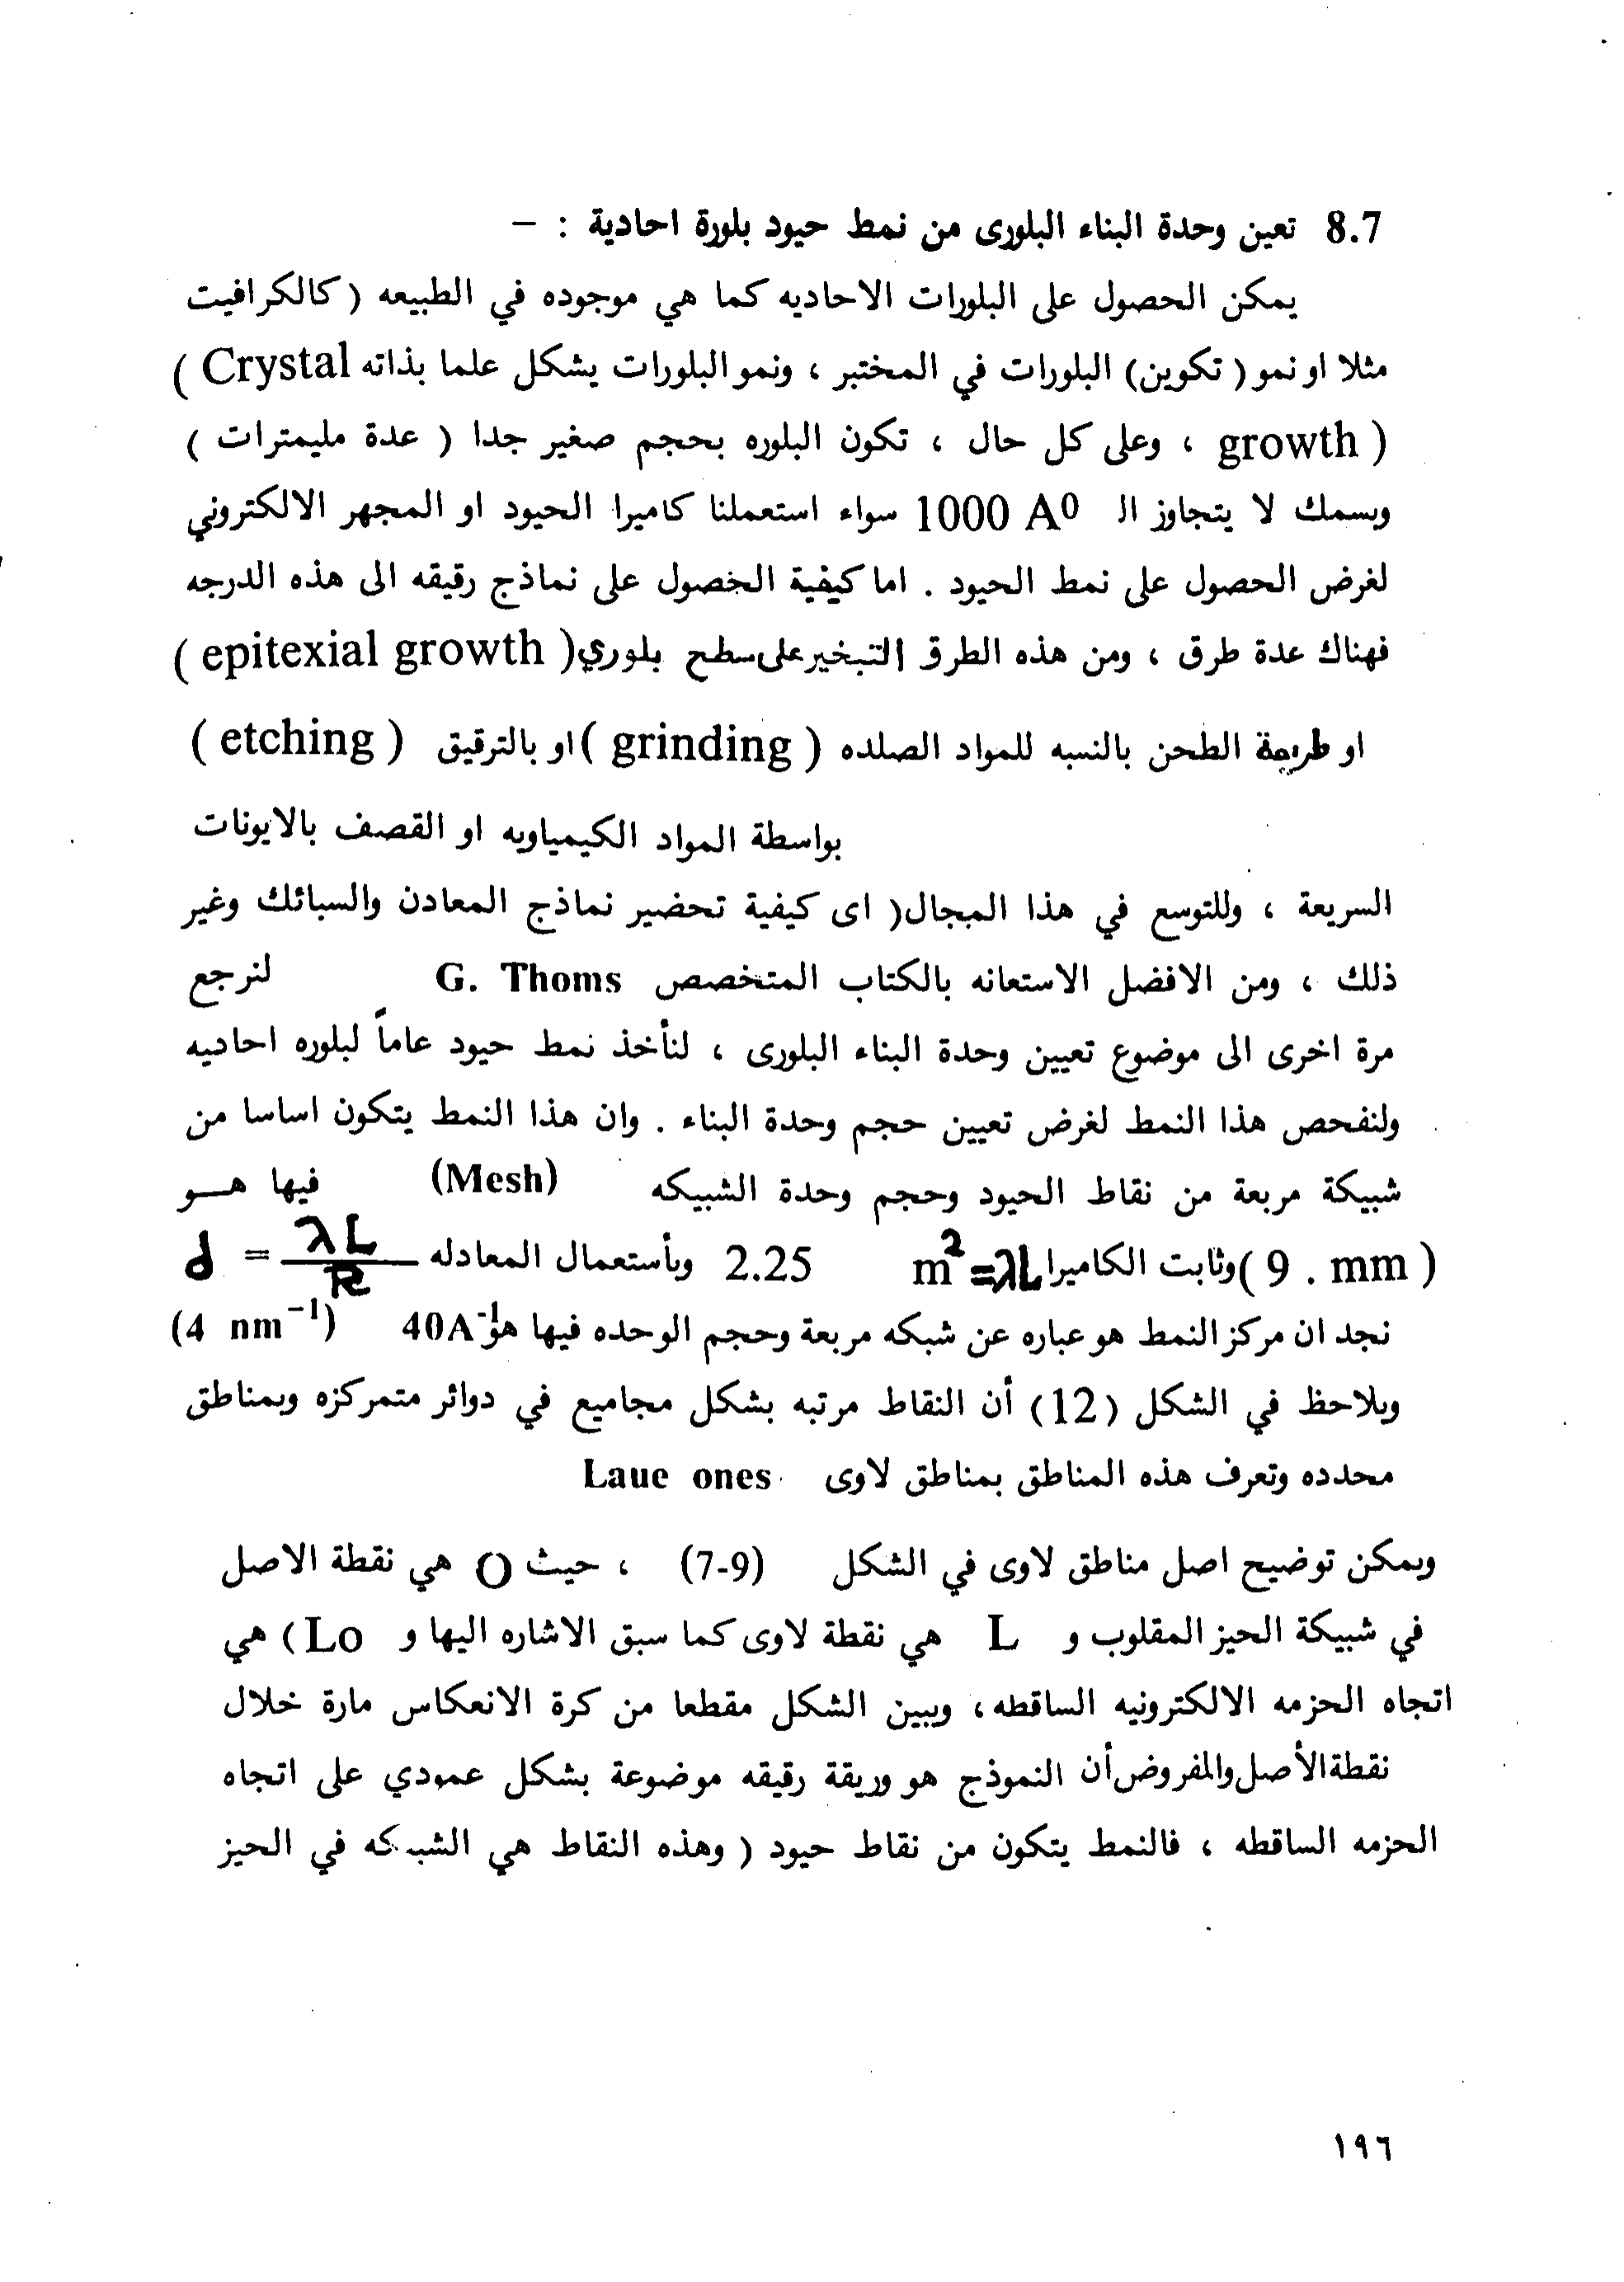 8.7 تعين وحدة البناء البلورى من نمط حيود بلورة احادية : –
يمكن الحصول على البلورات الاحاديه كما هي موجوده في الطبيعه ( كالكرافيت
مثلا او نمو ( تكوين) البلورات في المختبر ، ونمو البلورات يشكل علما بذاته Crystal )
( growth ، وعلى كل حال ، تكون البلوره بحجم صغير جدا ( عدة مليمترات )
وبسمك لا يتجاوز الـ 1000 A⁰ سواء استعملنا كاميرا الحيود او المجهر الالكتروني
لغرض الحصول على نمط الحيود . اما كيفية الخصول على نماذج رقيقه الى هذه الدرجه
فهناك عدة طرق ، ومن هذه الطرق التبخير على سطح بلوري( epitexial growth )
او طريقة الطحن بالنسبه للمواد الصلده ( grinding ) او بالترقيق ( etching )
بواسطة المواد الكيمياويه او القصف بالايونات
السريعة ، وللتوسع في هذا المجال( اى كيفية تحضير نماذج المعادن والسبائك وغير
ذلك ، ومن الافضل الاستعانه بالكتاب المتخصص G. Thoms لنرجع
مرة اخرى الى موضوع تعيين وحدة البناء البلورى ، لنأخذ نمط حيود عاماً لبلوره احاديه
ولنفحص هذا النمط لغرض تعيين حجم وحدة البناء . وان هذا النمط يتكون اساسا من
شبيكة مربعة من نقاط الحيود وحجم وحدة الشبيكه (Mesh) فيها هـو
( 9 . mm ) وثابت الكاميرا m²=λL 2.25 وبأستعمال المعادله d = λL/R
نجد ان مركز النمط هو عباره عن شبكه مربعة وحجم الوحده فيها هو 40A⁻¹ (4 nm⁻¹)
ويلاحظ في الشكل (12) أن النقاط مرتبه بشكل مجاميع في دوائر متمركزه وبمناطق
محدده وتعرف هذه المناطق بمناطق لاوى Laue ones
ويمكن توضيح اصل مناطق لاوى في الشكل (7-9) ، حيث O هي نقطة الاصل
في شبيكة الحيز المقلوب و L هي نقطة لاوى كما سبق الاشاره اليها و Lo ) هي
اتجاه الحزمه الالكترونيه الساقطه ، ويبين الشكل مقطعا من كرة الانعكاس مارة خلال
نقطة الأصل والمفروض أن النموذج هو وريقة رقيقه موضوعة بشكل عمودي على اتجاه
الحزمه الساقطه ، فالنمط يتكون من نقاط حيود ( وهذه النقاط هي الشبكه في الحيز
١٩٦